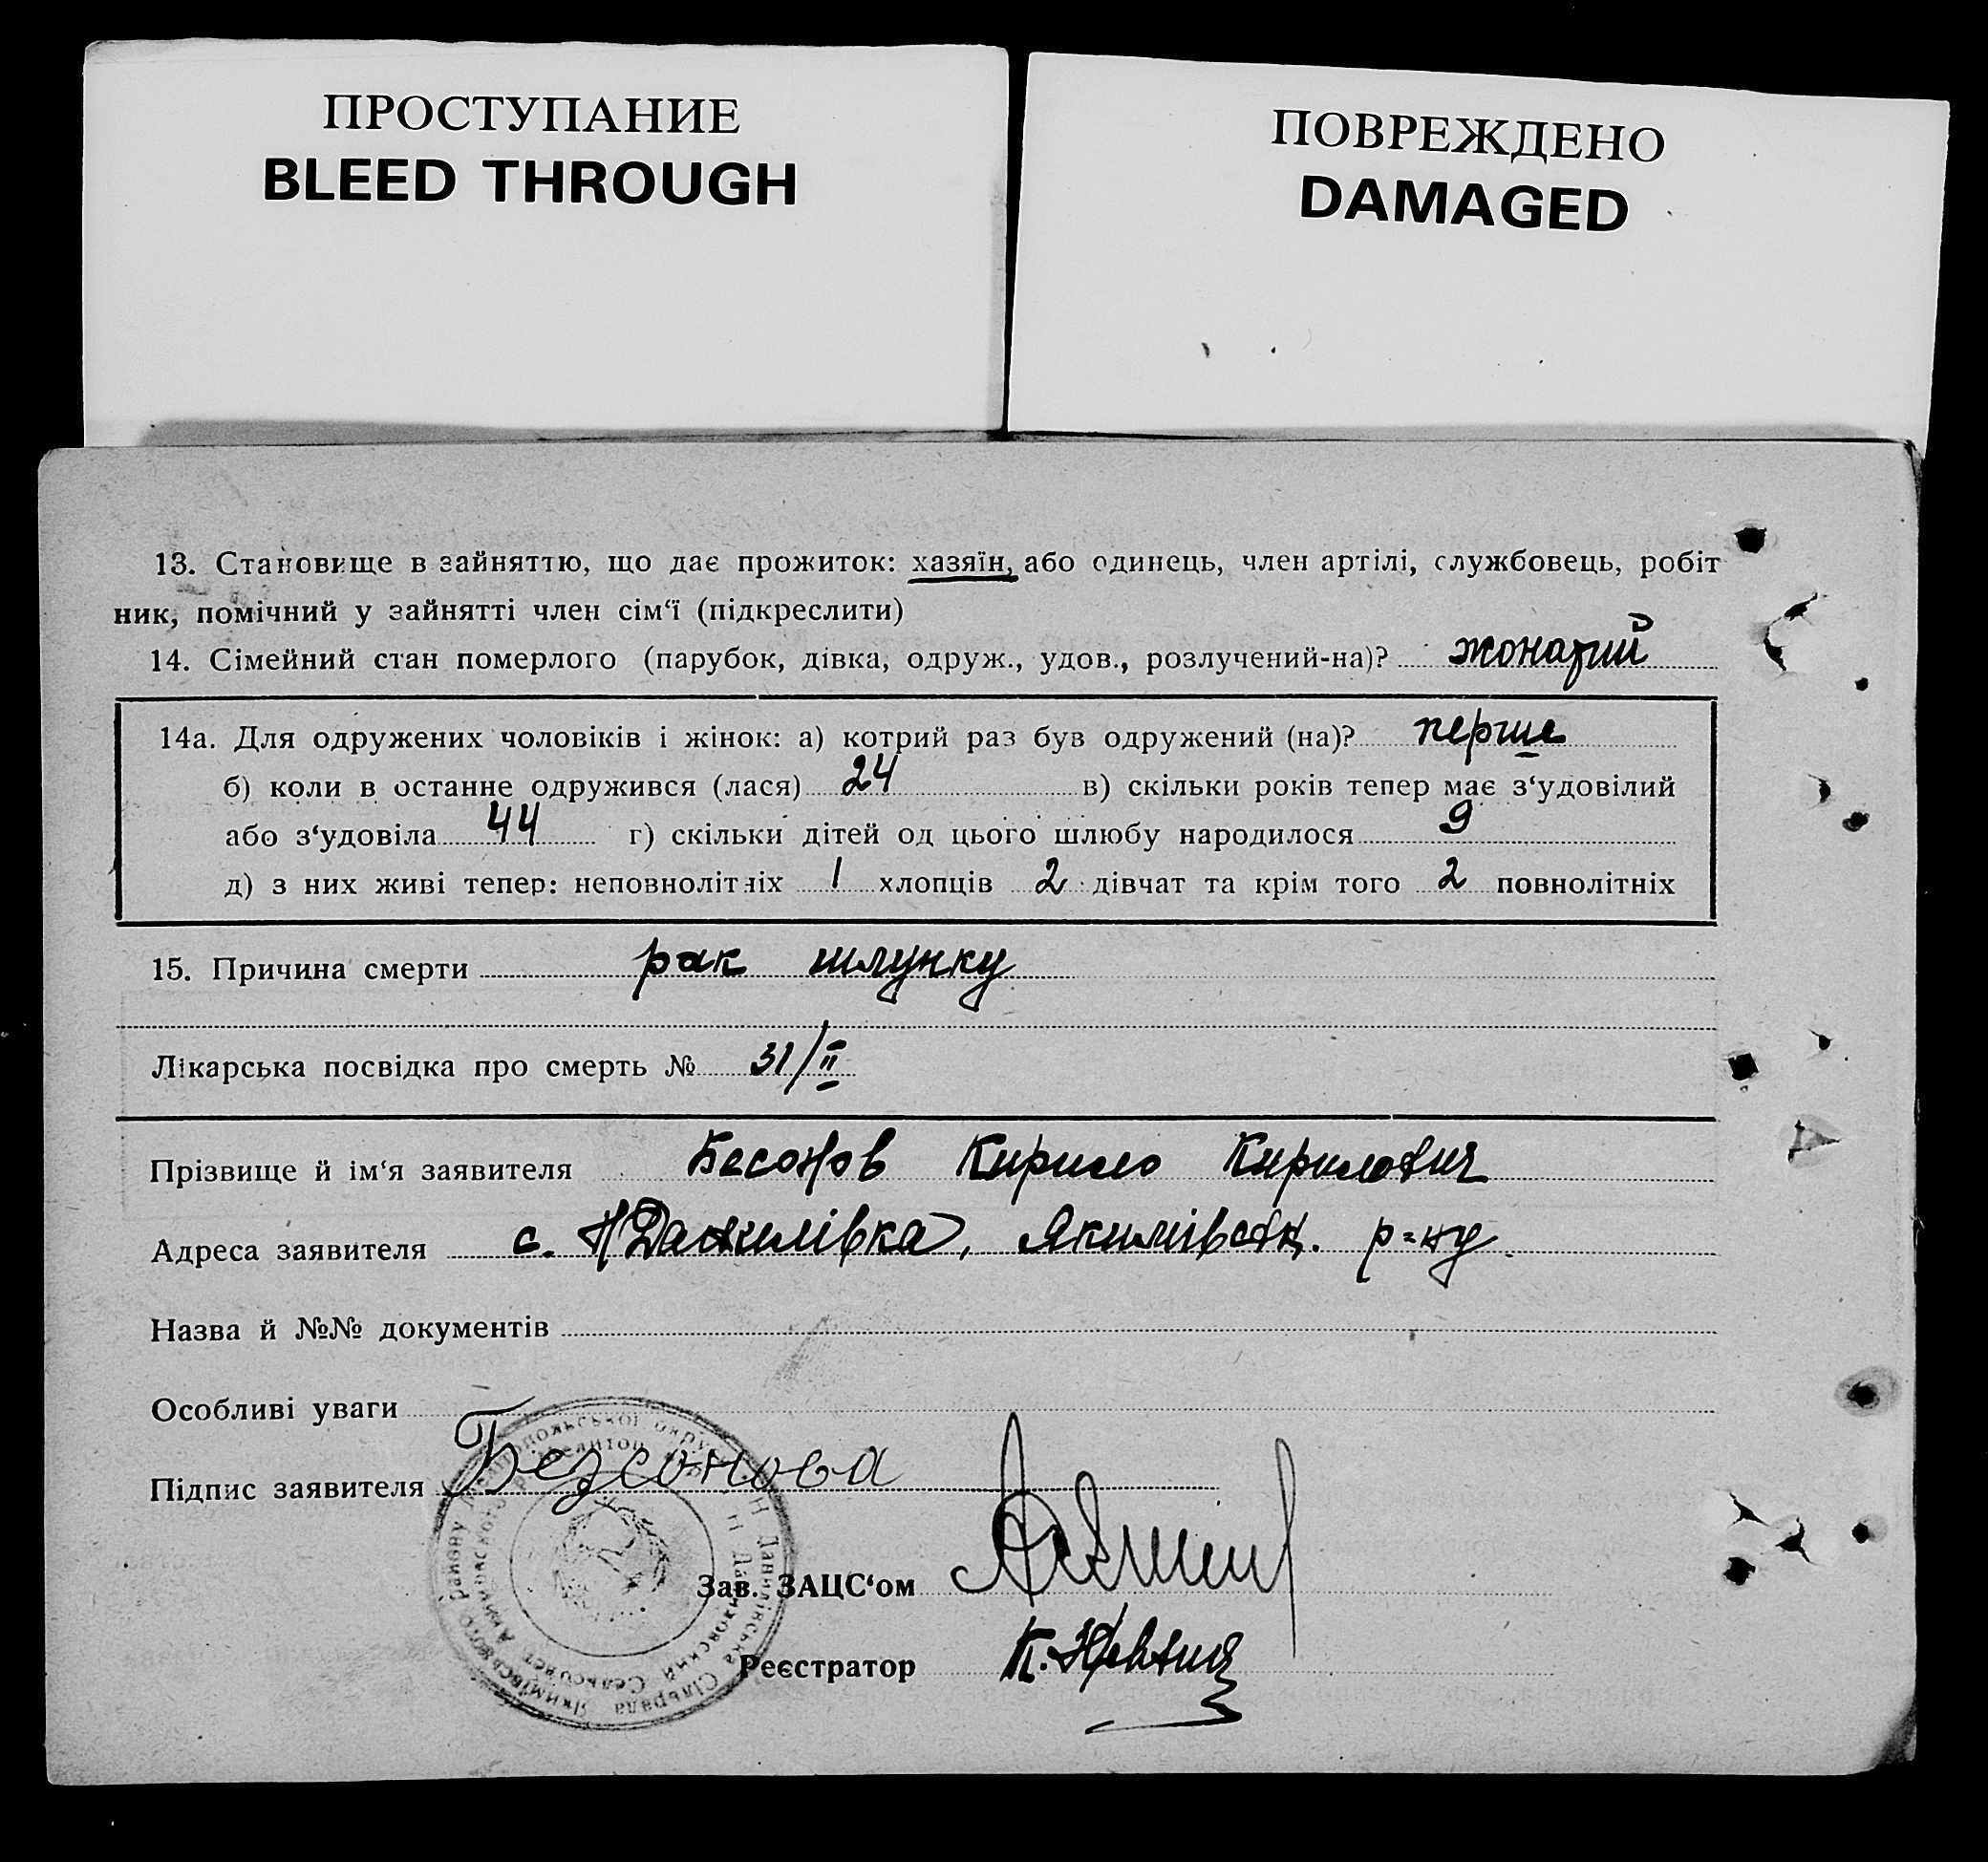 ПРОСТУПАНИЕ
BLEED THROUGH
ПОВРЕЖДЕНО
DAMAGED
13. Становище в зайняттю, що дає прожиток: хазяїн, або одинець, член артілі, службовець, робіт
ник, помічний у зайнятті член сім‘ї (підкреслити)
14. Сімейний стан померлого (парубок, дівка, одруж., удов., розлучений-на)? жонатий
14а. Для одружених чоловіків і жінок: а) котрий раз був одружений (на)? перше
б) коли в останне одружився (лася) 24 в) скільки років тепер має з‘удовілий
або з‘удовіла 44 г) скільки дітей од цього шлюбу народилося 9
д) з них живі тепер: неповнолітніх 1 хлопців 2 дівчат та крім того 2 повнолітніх
15. Причина смерти рак шлунку
Лікарська посвідка про смерть № 31/II
Прізвище й ім‘я заявителя Бесонов Кирило Кирилович
Адреса заявителя с. Н Данилівка, Якимівськ. р=ну
Назва й №№ документів
Особливі уваги
Підпис заявителя Безсонова
Зав. ЗАЦС‘ом
Реєстратор К.